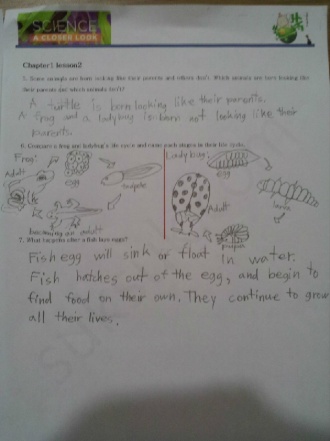 SCIENCE
A CLOSER LOOK
Chapter1 lesson2
5. Some animals are born looking like their parents and others don't. Which animals are born looking like
their parents and which animals don't?
A turtle is born looking like their parents.
A frog and a ladybug is born not looking like their
parents.
6. Compare a frog and ladybug's life cycle and name each stages in their life cycle.
Frog:
Ladybug:
egg
egg
Adult
tadpole
larva
Adult
becoming an adult
pupa
7. What happens after a fish lays eggs?
Fish egg will sink or float in water.
Fish hatches out of the egg, and begin to
find food on their own. They continue to grow
all their lives.